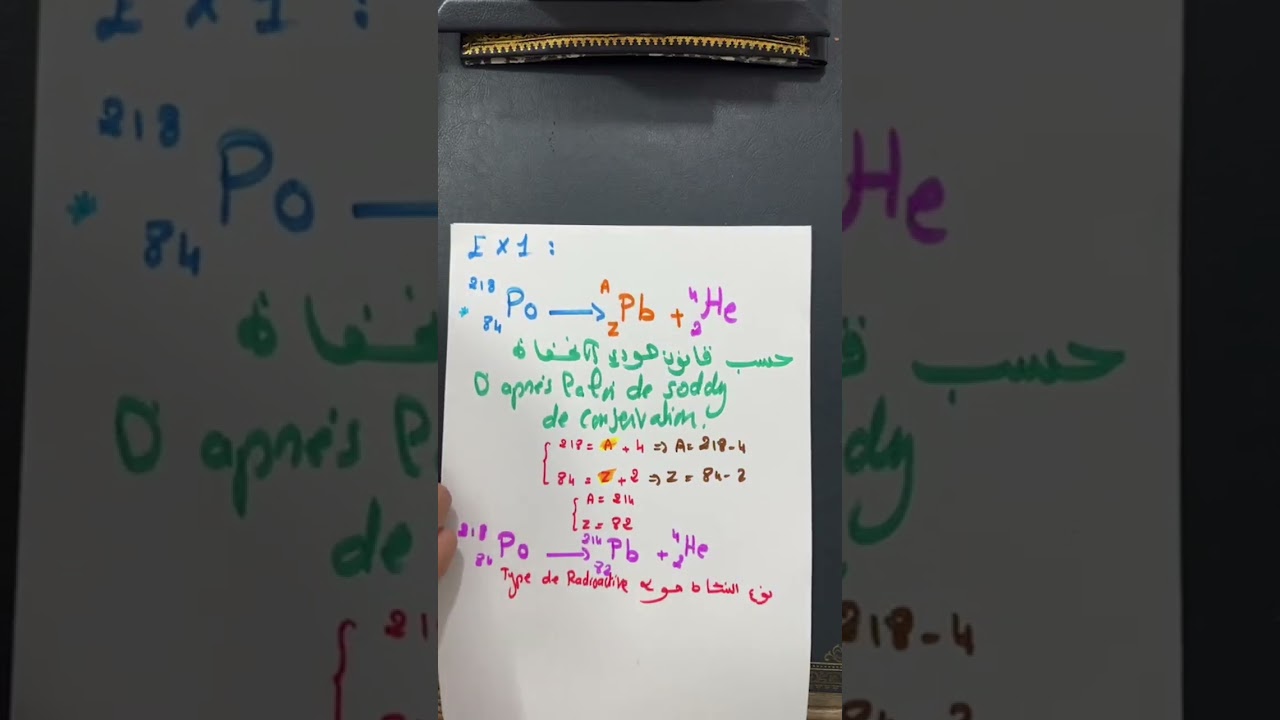 Ex1 :
* ²¹⁸₈₄Po ⟶ ᴬ_ZPb + ⁴₂He
حسب قانون صودي للانحفاظ
D'après la loi de soddy
de conservation.
218 = A + 4 ⇒ A = 218-4
84 = Z + 2 ⇒ Z = 84-2
A = 214
Z = 82
²¹⁸₈₄Po ⟶ ²¹⁴₈₂Pb + ⁴₂He
Type de Radioactive α نوع النشاط هو